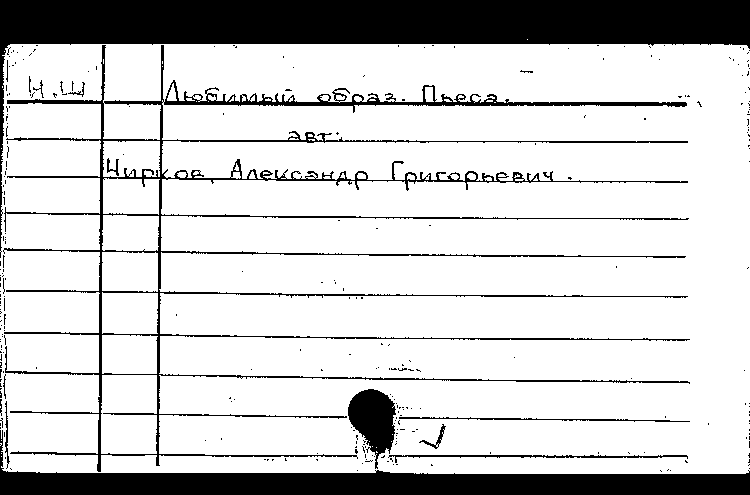 Н.Ш Любимый образ. Пьеса.
авт.
Чирков, Александр Григорьевич.